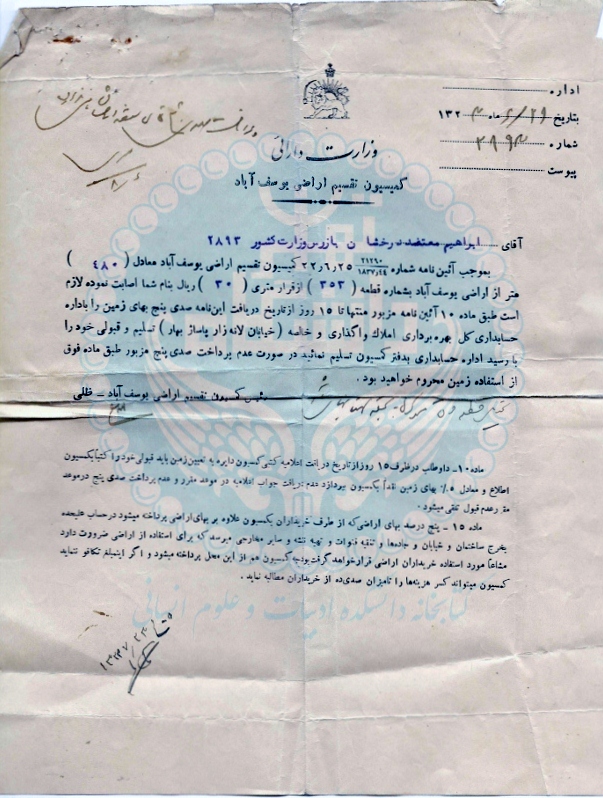 اداره
بتاریخ ۲۹/۶/ ماه ۱۳۲۴
شماره ۲۸۹۳
پیوست
وزارت دارائی
کمیسیون تقسیم اراضی یوسف آباد
آقای ابراهیم معتضد درخشان بازرس وزارت کشور ۲۸۹۳
بموجب آئین نامه شماره ۲۱۲۹۰/۱۸۳۷٫۲۴ ۲۲٫۶٫۲۵ کمیسیون تقسیم اراضی یوسف آباد معادل ( ۴۸۰ )
متر از اراضی یوسف آباد بشماره قطعه ( ۳۵۳ ) از قرار متری ( ۳۰ ) ریال بنام شما اصابت نموده لازم
است طبق ماده ۱۰ آئین نامه مزبور منتها تا ۱۵ روز از تاریخ دریافت این نامه صدی پنج بهای زمین را باداره
حسابداری کل بهره برداری املاک واگذاری و خالصه (خیابان لاله زار پاساژ بهار) تسلیم و قبولی خود را
با رسید اداره حسابداری بدفتر کمسیون تسلیم نمائید در صورت عدم پرداخت صدی پنج مزبور طبق ماده فوق
از استفاده زمین محروم خواهید بود .
رئیس کمسیون تقسیم اراضی یوسف آباد - ظلی
ماده ۱۰- داوطلب در ظرف ۱۵ روز از تاریخ دریافت اعلامیه کتبی کمسیون دایر به تعیین زمین باید قبولی خود را کتباً بکمسیون
اطلاع و معادل ۵٪ بهای زمین نقداً بکمسیون بپردازد عدم دریافت جواب اعلامیه در موعد مقرر و عدم پرداخت صدی پنج در موعد
مقرر عدم قبول تلقی میشود.
ماده ۱۵ - پنج درصد بهای اراضی که از طرف خریداران بکمسیون علاوه بر بهای اراضی پرداخته میشود در حساب علیحده
بخرج ساختمان و خیابان و جاده‌ها و تنقیه قنوات و تهیه نقشه و سایر مخارجی میرسد که برای استفاده از اراضی ضرورت دارد
مشاعاً مورد استفاده خریداران اراضی قرار خواهد گرفت بودجه کمسیون هم از این محل پرداخته میشود و اگر این مبلغ تکافو ننماید
کمسیون میتواند کسر هزینه‌ها را تا میزان صدی ده از خریداران مطالبه نماید .
کتابخانه دانشکده ادبیات و علوم انسانی